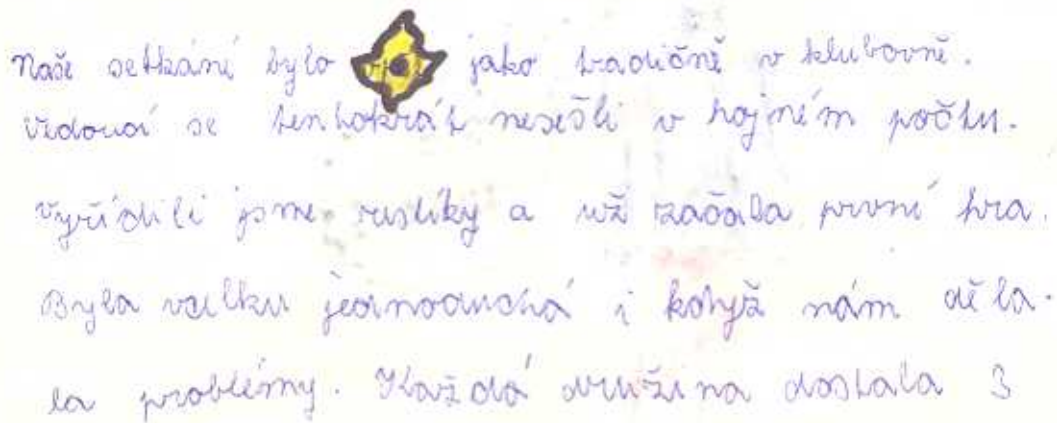 Naše setkání bylo jako tradičně v klubovně.
Vedoucí se tentokrát nesešli v hojném počtu.
Vyřídili jsme restíky a už začala první hra.
Byla vcelku jednoduchá i když nám děla-
la problémy. Každá družina dostala 3